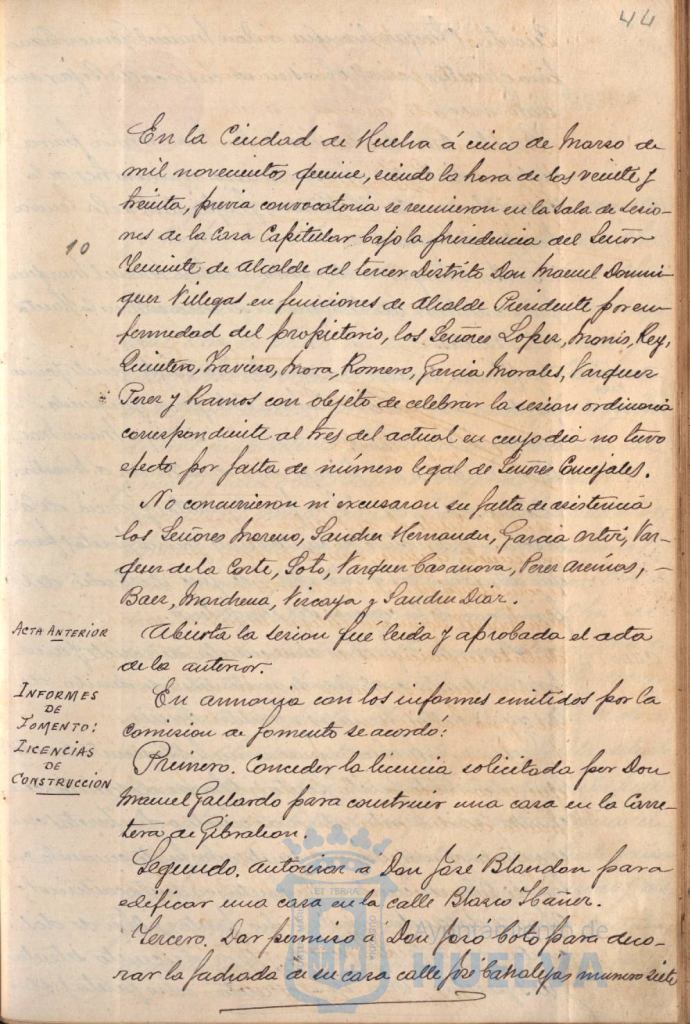 44
En la Ciudad de Huelva á cinco de Marzo de
mil novecientos quince, siendo la hora de las veinte y
treinta, previa convocatoria se reunieron en la Sala de Sesio-
10
nes de la Casa Capitular bajo la presidencia del Señor
Teniente de Alcalde del tercer Distrito Don Manuel Domin-
guez Villegas en funciones de Alcalde Presidente por en-
fermedad del propietario, los Señores Lopez, Monis, Rey,
Quintero, Travieso, Mora, Romero, Garcia Morales, Vazquez
Perez y Ramos con objeto de celebrar la sesion ordinaria
correspondiente al tres del actual en cuyo dia no tuvo
efecto por falta de número legal de Señores Concejales.
No concurrieron ni excusaron su falta de asistencia
los Señores Moreno, Sanchez Hernandez, Garcia Ortiz, Vaz-
quez de la Corte, Soto, Vazquez Casanova, Perez Arenas, -
Baez, Marchena, Vizcaya y Sanchez Diaz.
ACTA ANTERIOR
Abierta la sesion fué leida y aprobada el acta
de la anterior.
INFORMES
DE
FOMENTO:
LICENCIAS
DE
CONSTRUCCION
En armonia con los informes emitidos por la
comision de fomento se acordó:
Primero. Conceder la licencia solicitada por Don
Manuel Gallardo para construir una casa en la Carre-
tera de Gibraleon.
Segundo. Autorizar á Don José Blandon para
edificar una casa en la calle Blasco Ibáñez.
Tercero. Dar permiso á Don José Coto para deco-
rar la fachada de su casa calle José Canalejas numero siete
ET TERRA
Ayuntamiento de
HUELVA